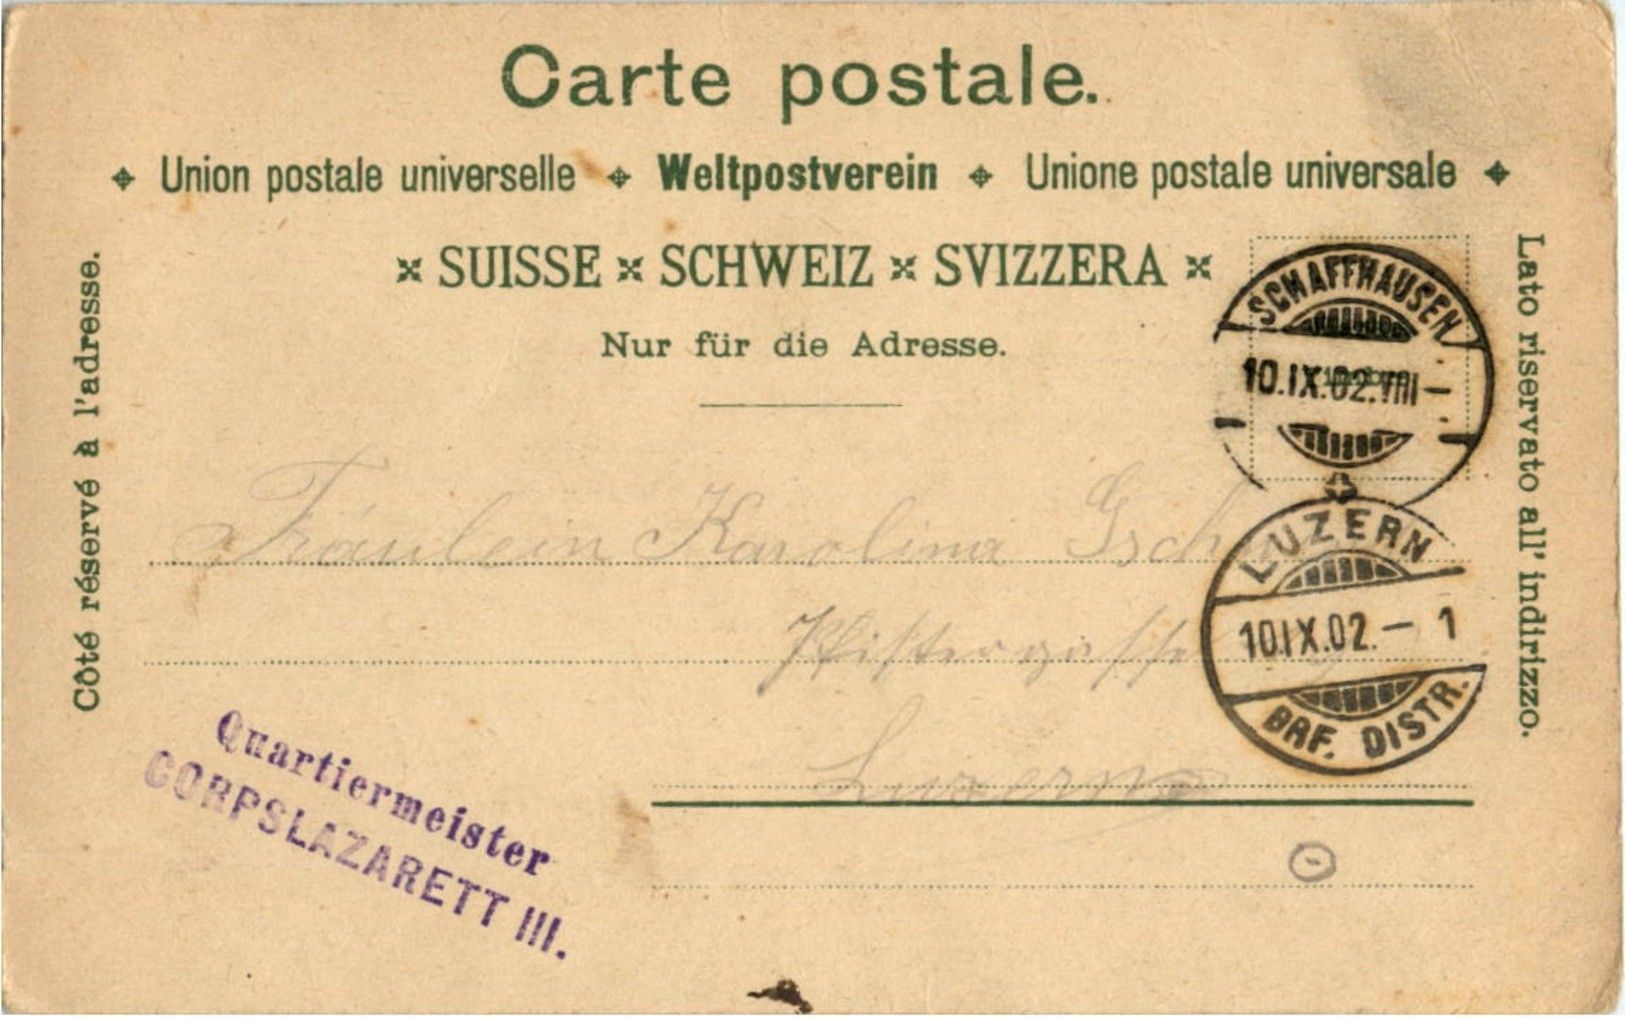 Carte postale.
Union postale universelle Weltpostverein Unione postale universale
SUISSE SCHWEIZ SVIZZERA
Nur für die Adresse.
Côté réservé à l'adresse.
Lato riservato all' indirizzo.
SCHAFFHAUSEN
10.IX.02.VIII–
Fräulein Karolina
Pfistergasse
Luzern
LUZERN
10.IX.02.– 1
BRF. DISTR.
Quartiermeister
CORPSLAZARETT III.